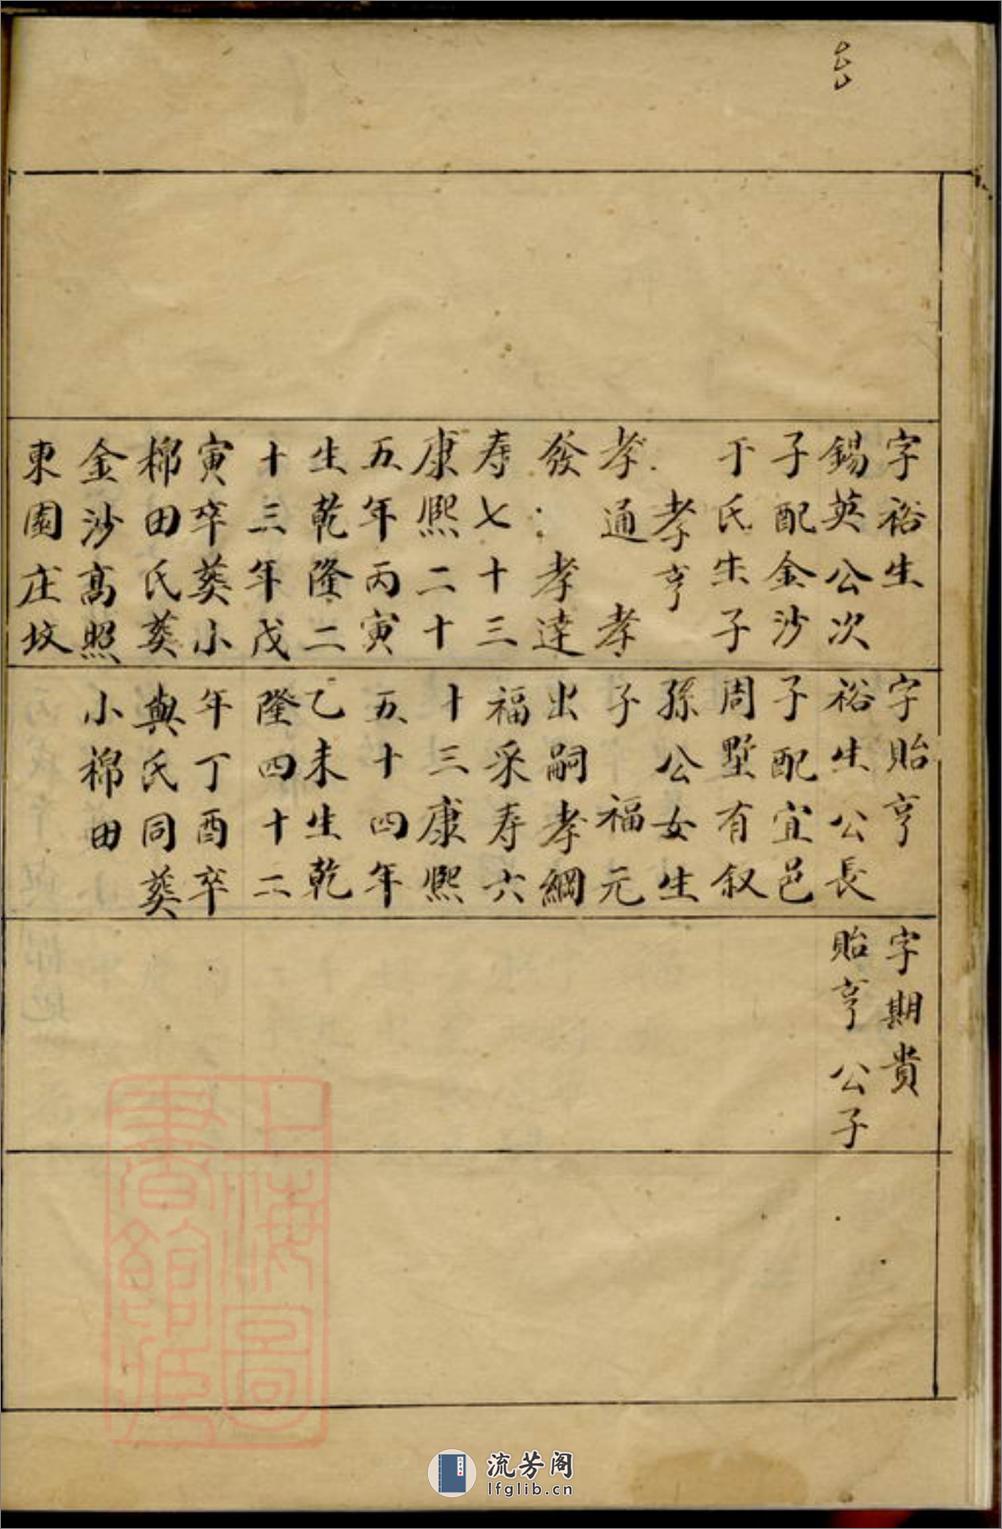 字裕生
錫英公次
子配金沙
于氏生子
孝亨
孝通 孝
發 孝達
寿七十三
康熙二十
五年丙寅
生乾隆二
十三年戊
寅卒葵小
棉田氏葵
金沙高照
東園庄坟
字貽亨
裕生公長
子配宜邑
周墅有叙
孫公女生
子福元
出嗣孝綱
福采寿六
十三康熙
五十四年
乙未生乾
隆四十二
年丁酉卒
與氏同葵
小棉田
字期貴
貽亨公子
上海圖
書館藏
流芳阁
lfglib.cn